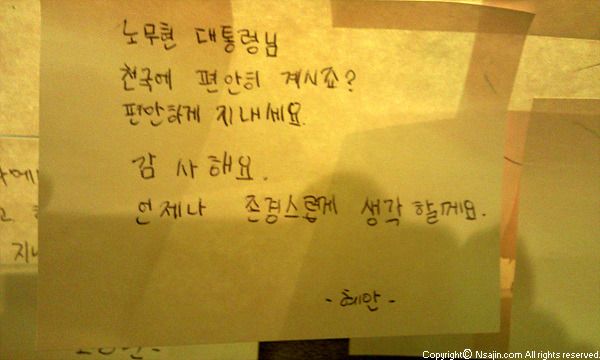 노무현 대통령님
천국에 편안히 계시죠?
편안하게 지내세요.
감사해요.
언제나 존경스럽게 생각할께요.
-혜안-
Copyright© Nsajin.com All rights reserved.